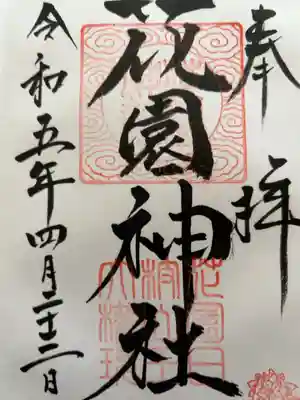 奉拝
花園神社
令和五年四月二十三日